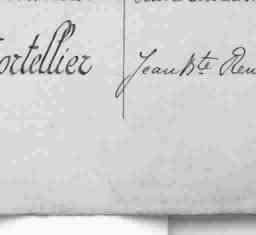 ortellier Jean Bte Ren